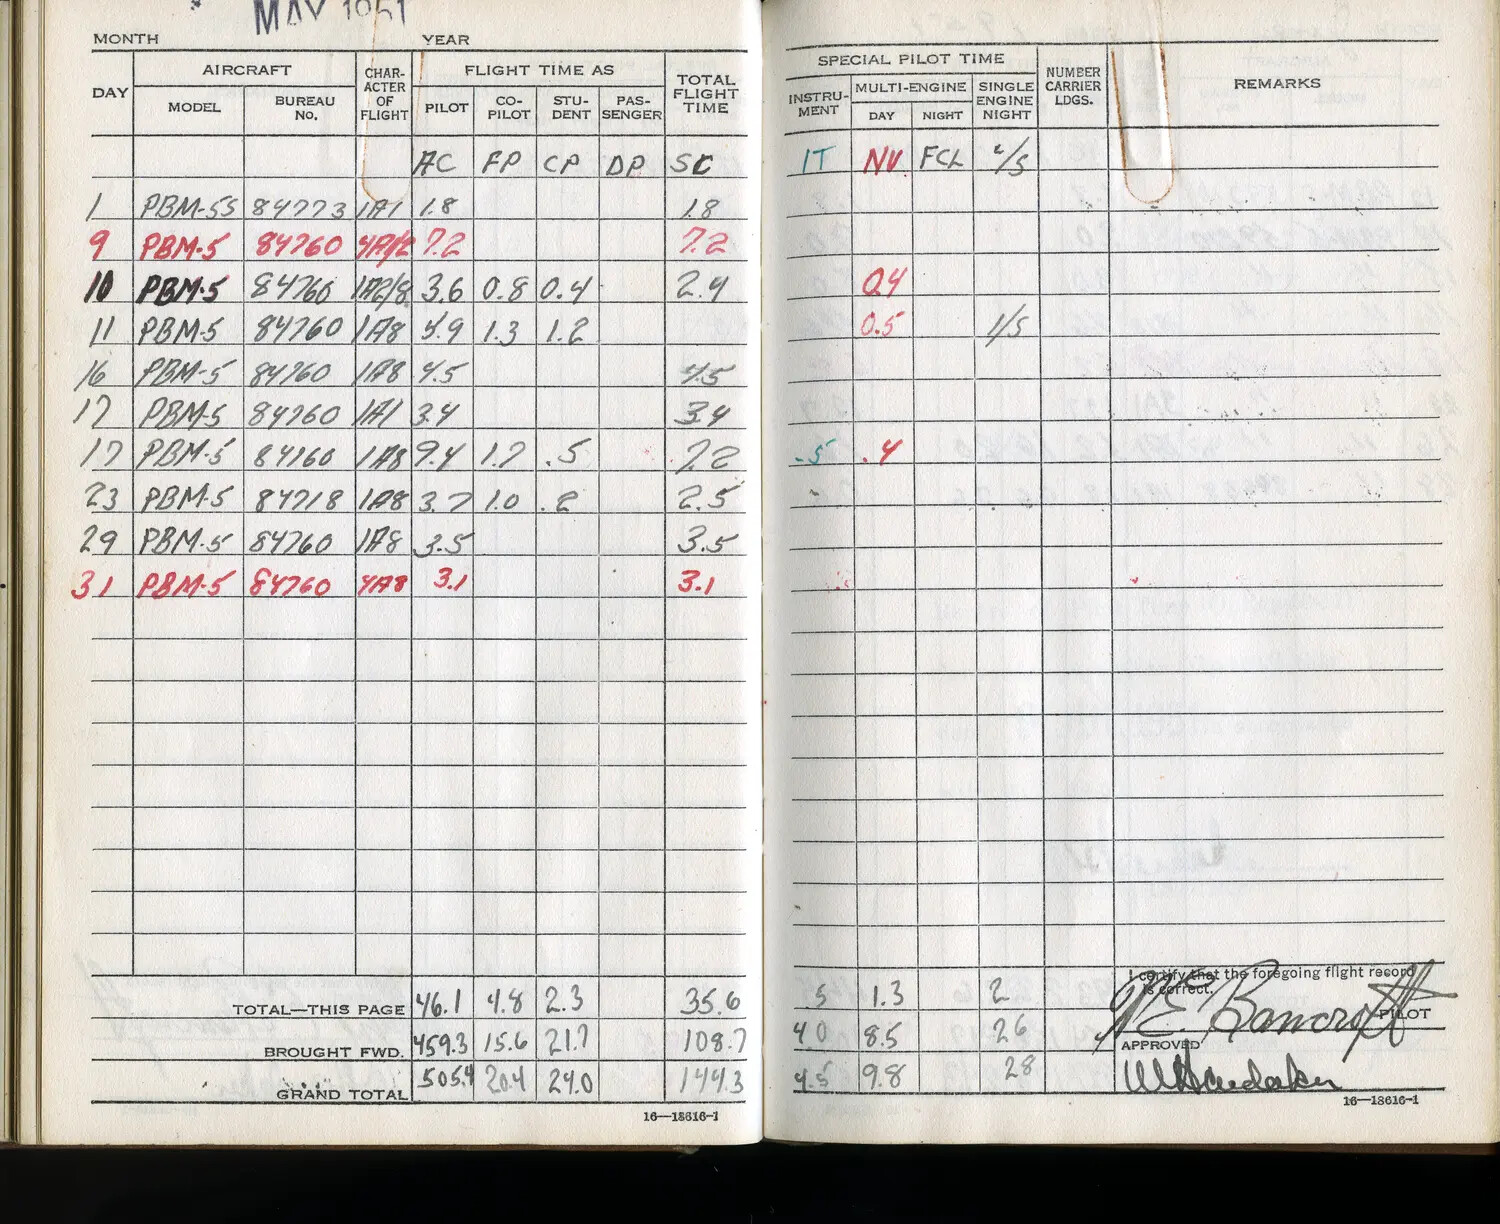 MAY 1951
MONTH YEAR
DAY AIRCRAFT CHARACTER OF FLIGHT FLIGHT TIME AS TOTAL FLIGHT TIME SPECIAL PILOT TIME NUMBER CARRIER LDGS. REMARKS
MODEL BUREAU No. PILOT CO-PILOT STUDENT PASSENGER INSTRUMENT MULTI-ENGINE SINGLE ENGINE NIGHT
DAY NIGHT
AC FP CP DP SC IT NV FCL L/S
1 PBM-5S 84773 1A1 1.8 1.8
9 PBM-5 84760 4A/2 7.2 7.2
10 PBM-5 84760 1A2/8 3.6 0.8 0.4 2.4 0.4
11 PBM-5 84760 1A8 4.9 1.3 1.2 0.5 1/5
16 PBM-5 84760 1A8 4.5 4.5
17 PBM-5 84760 1A1 3.4 3.4
17 PBM-5 84760 1A8 9.4 1.7 .5 7.2 .5 .4
23 PBM-5 84718 1A8 3.7 1.0 .2 2.5
29 PBM-5 84760 1A8 3.5 3.5
31 PBM-5 84760 4A8 3.1 3.1
TOTAL—THIS PAGE 46.1 4.8 2.3 35.6 5 1.3 2
BROUGHT FWD. 459.3 15.6 21.7 108.7 40 8.5 26
GRAND TOTAL 505.4 20.4 24.0 144.3 4.5 9.8 28
I certify that the foregoing flight record is correct.
N.E. Bancroft PILOT
APPROVED
16—18616-1 16—18616-1